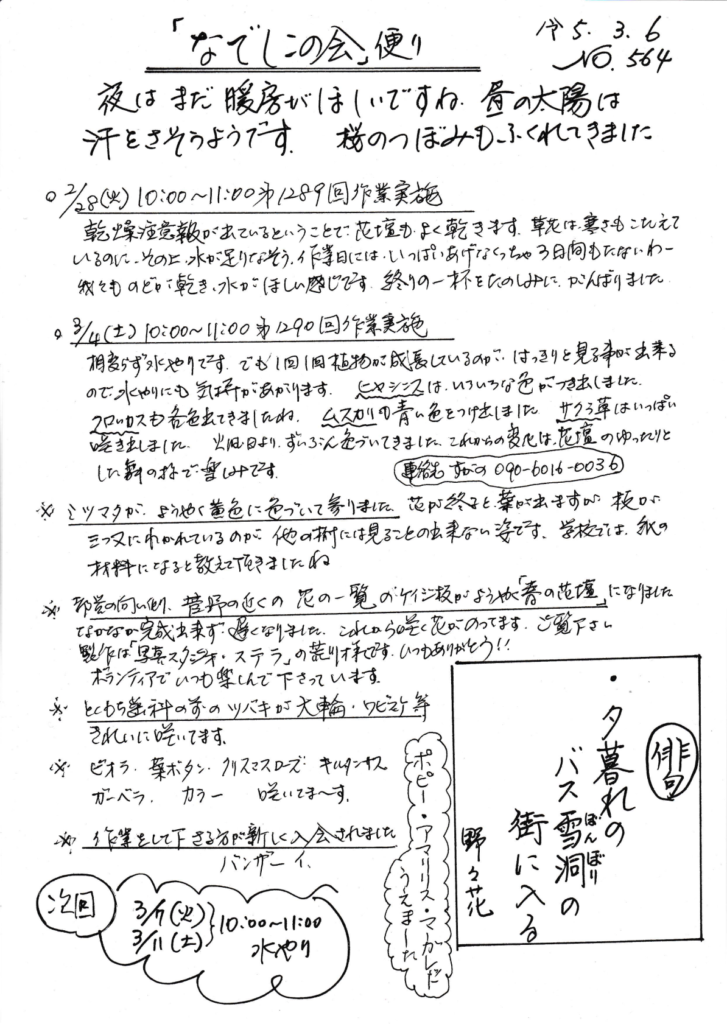 「なでしこの会」便り
令5.3.6
NO.564
夜はまだ暖房がほしいですね 昼の太陽は
汗をさそうようです. 桜のつぼみもふくれてきました
○2/28(火)10:00〜11:00第1289回作業実施
乾燥注意報が出ているということで花壇もよく乾きます. 草花は寒さもこたえて
いるのに、その上、水が足りなそう. 作業日には、いっぱいあげなくっちゃ3日間もたないわー
我々ものどが乾き、水がほしい感じです. 終りの一杯をたのしみに、がんばりました
○3/4(土)10:00〜11:00第1290回作業実施
相変らず水やりです. でも1回1回植物が成長しているのが、はっきりと見る事が出来る
ので、水やりにも気合があがります. ヒヤシンスは、いろいろな色がつき出しました.
クロッカスも各色出てきましたね. ムスカリも青い色をつけ出しました サクラ草はいっぱい
咲き出しました. 火曜日より、ずいぶん色づいてきました. これからの変化は、花壇のゆったりと
した舞の様で楽しみです.
連絡先 すがの 090-6016-0036
※ミツマタが、ようやく黄色に色づいて参りました. 花が終ると、葉が出ますが 枝が
三つ又にわかれているのが、他の樹には見ることの出来ない姿です. 学校では、紙の
材料になると教えて頂きましたね
の向い側、菅野の近くの 花の一覧 のケイジ板がようやく「春の花壇」になりました
なかなか完成出来ず 遅くなりました. これから咲く花がのってます. ご覧下さい
製作は「写真スタジオ・ステラ」の荒川様です. いつもありがとう!!
ボランティアでいつも楽しんで下さっています.
※とくもち歯科の前のツバキが大輪・ワビスケ等
きれいに咲いてます.
※ビオラ. 葉ボタン. クリスマスローズ. キルタンサス
ガーベラ. カラー 咲いてまーす.
※作業をして下さる方が新しく入会されました
バンザーイ.
次回
3/7(火)
3/11(土)
10:00〜11:00
水やり
ポピー・アマリリス・マーガレット
うえました
俳句
・夕暮れの
バス雪洞の
ぼんぼり
街に入る
野々花